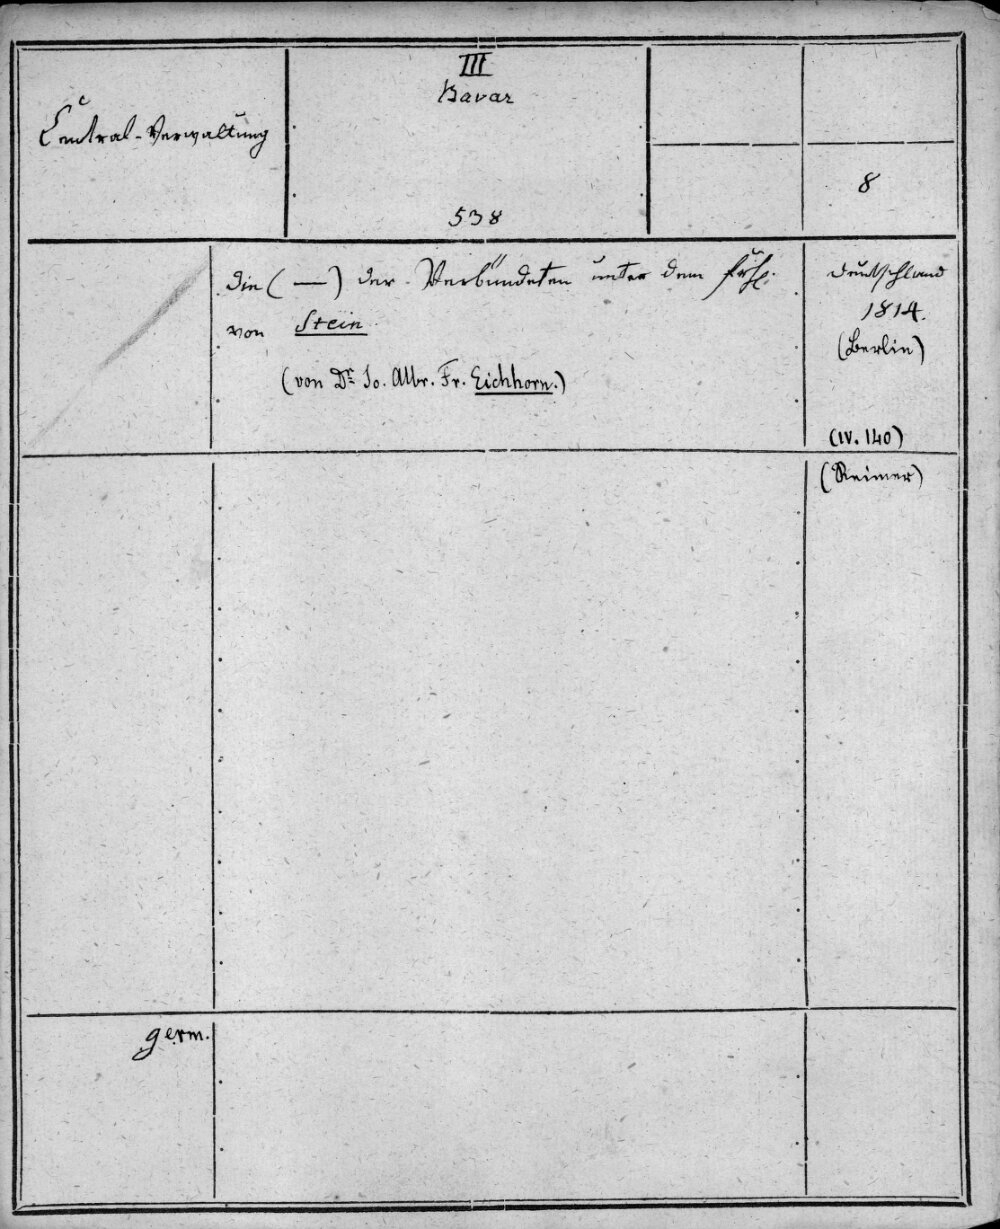 Central-Verwaltung
III
Bavar
538
8
Die (—) der Verbündeten unter dem Frhr.
von Stein
(von Dr. Jo. Albr. Fr. Eichhorn.)
Deutschland
1814.
(Berlin)
(IV. 140)
(Reimer)
germ.